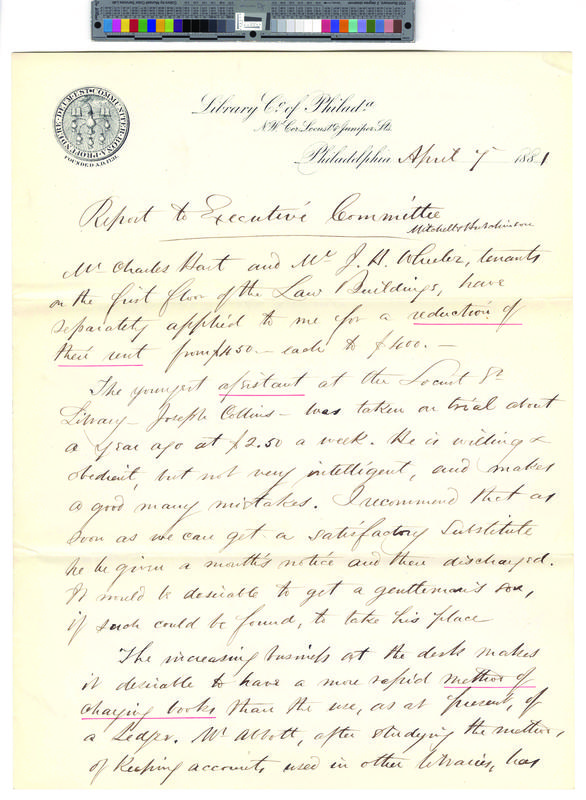 COMMUNITER BONA PROFUNDERE DEUM EST
FOUNDED A.D. 1731.
Library Co. of Philada.
N.W. Cor. Locust & Juniper Sts.
Philadelphia April 7 1881
Report to Executive Committee
Mitchell & Hutchinson
Mr Charles Hart and Mr J. H. Wheeler, tenants
on the first floor of the Law Buildings, have
separately applied to me for a reduction of
their rent from $450.— each to $400.—
The youngest assistant at the Locust St
Library — Joseph Collins — was taken on trial about
a year ago at $2.50 a week. He is willing &
obedient, but not very intelligent, and makes
a good many mistakes. I recommend that as
soon as we can get a satisfactory substitute
he be given a month's notice and then discharged.
It would be desirable to get a gentleman's son,
if such could be found, to take his place
The increasing business at the desk makes
it desirable to have a more rapid method of
charging books than the use, as at present, of
a Ledger. Mr Abbott, after studying the methods,
of keeping accounts, used in other libraries, has